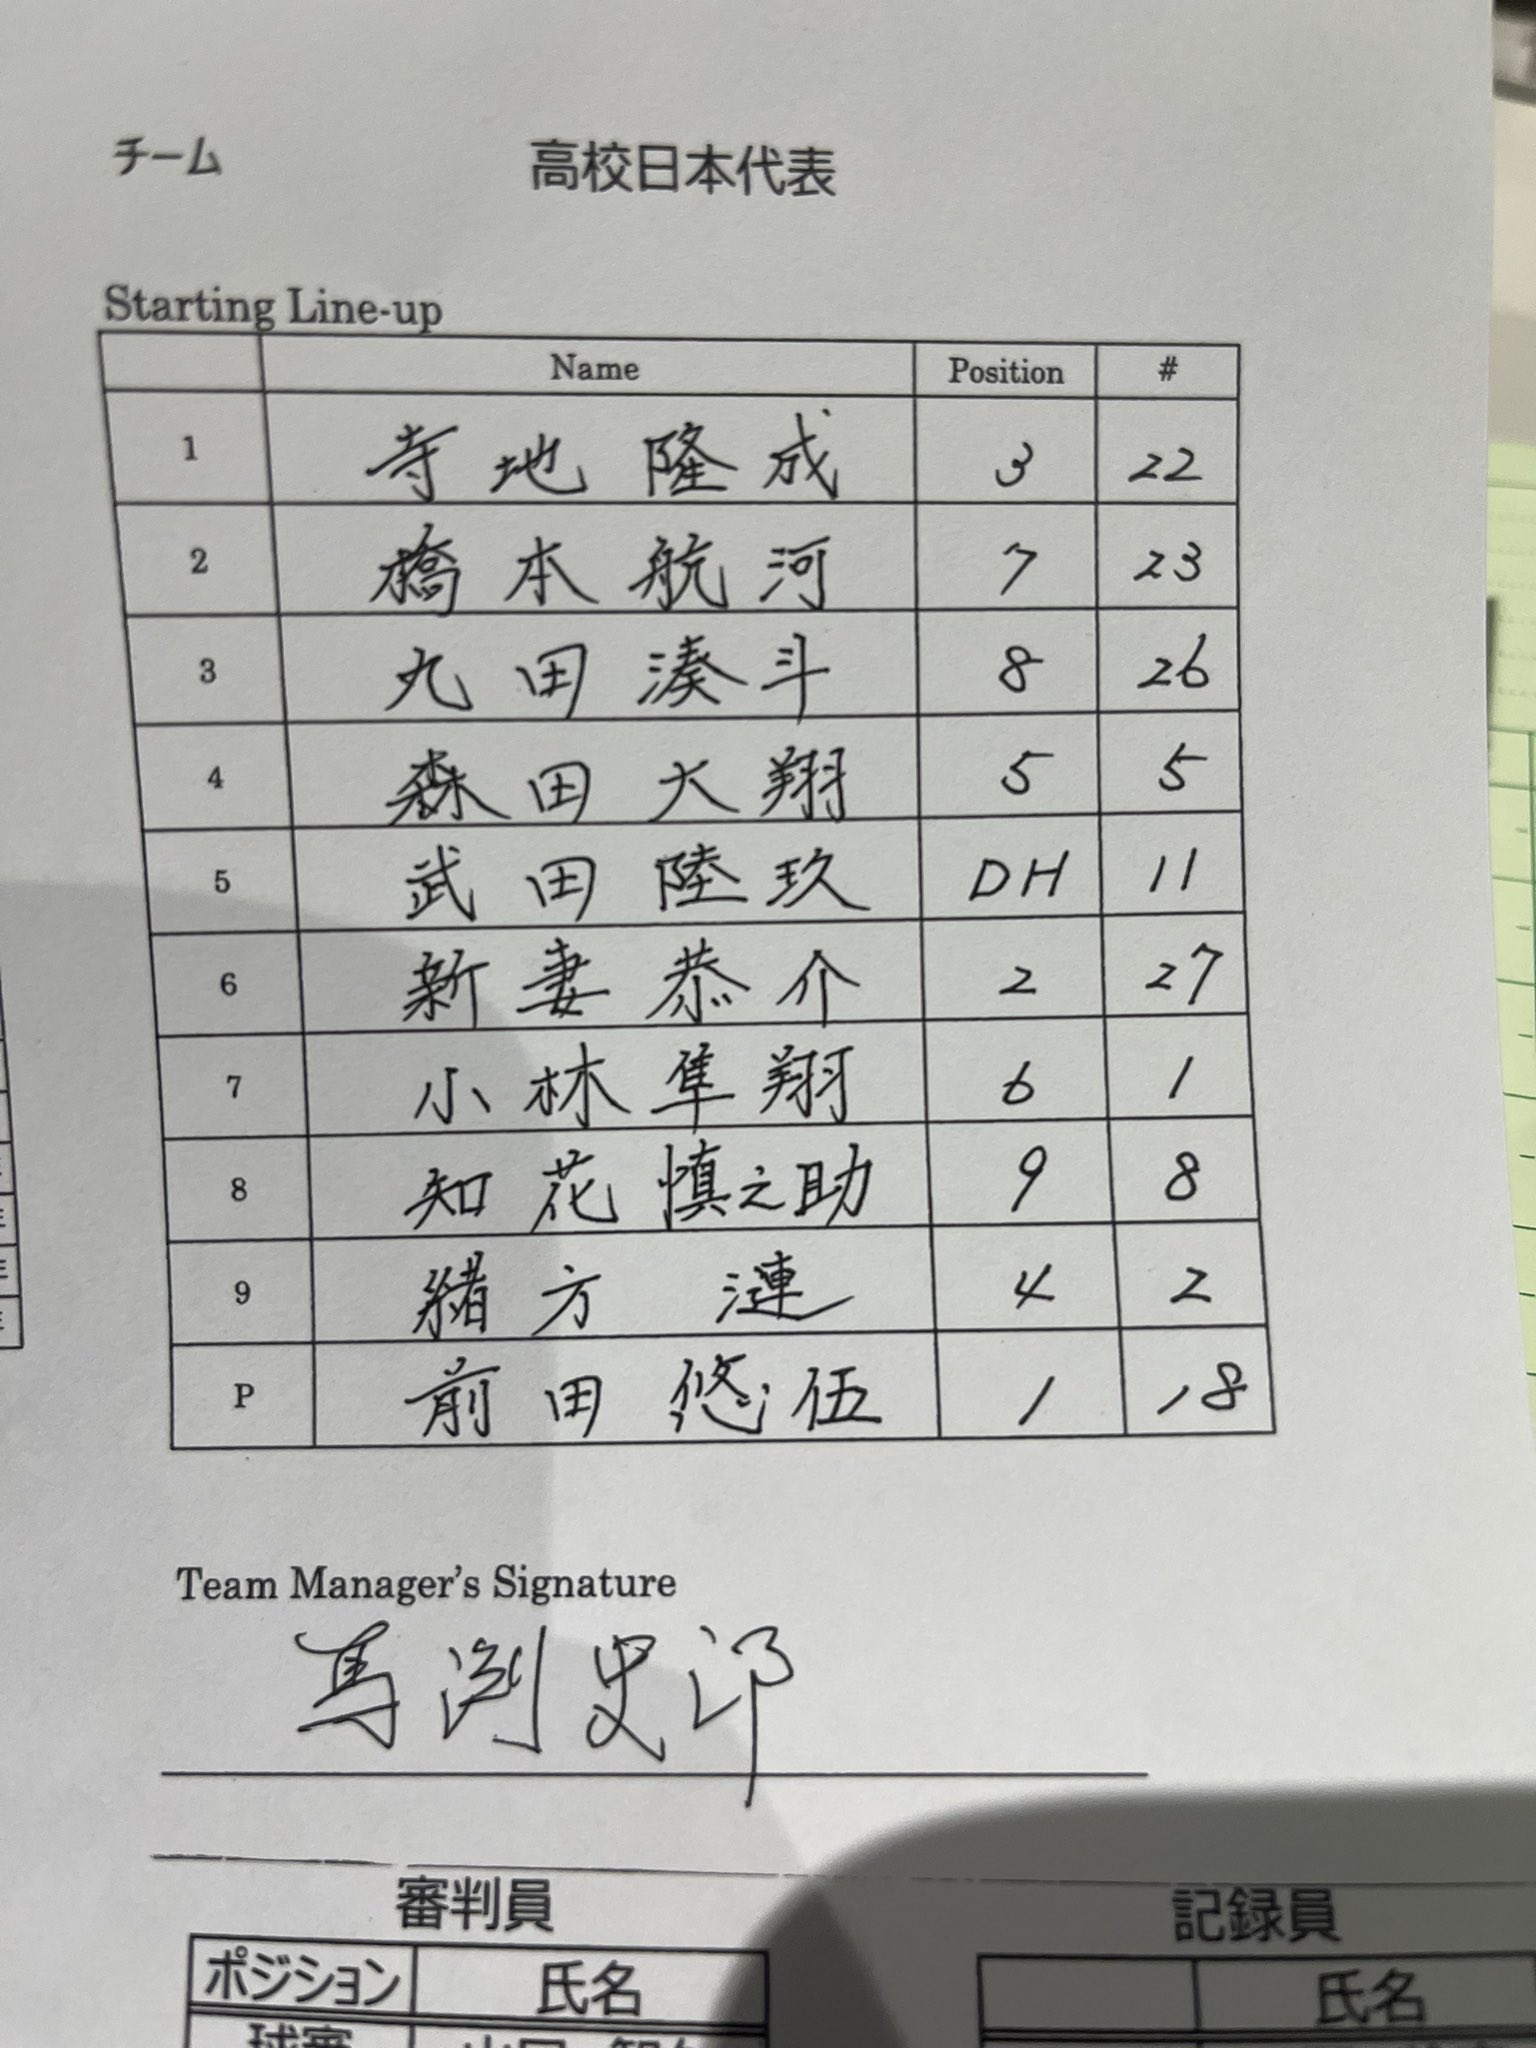 チーム 高校日本代表
Starting Line-up
Name Position #
1 寺地隆成 3 22
2 橋本航河 7 23
3 丸田湊斗 8 26
4 森田大翔 5 5
5 武田陸玖 DH 11
6 新妻恭介 2 27
7 小林隼翔 6 1
8 知花慎之助 9 8
9 緒方漣 4 2
P 前田悠伍 1 18
Team Manager's Signature
馬渕史郎
審判員 記録員
ポジション 氏名 氏名
球審